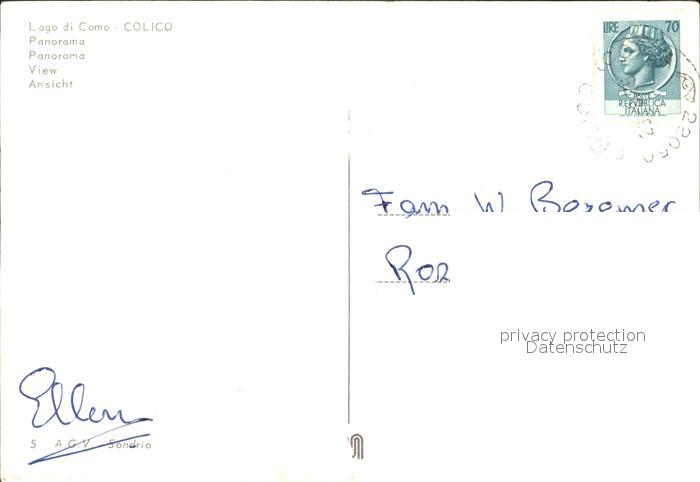 Lago di Como - COLICO
Panorama
Panorama
View
Ansicht
LIRE 70
POSTE
REPVBBLICA
ITALIANA
22050
Fam W
privacy protection
Datenschutz
Ellen
5 A.G.V. Sondrio